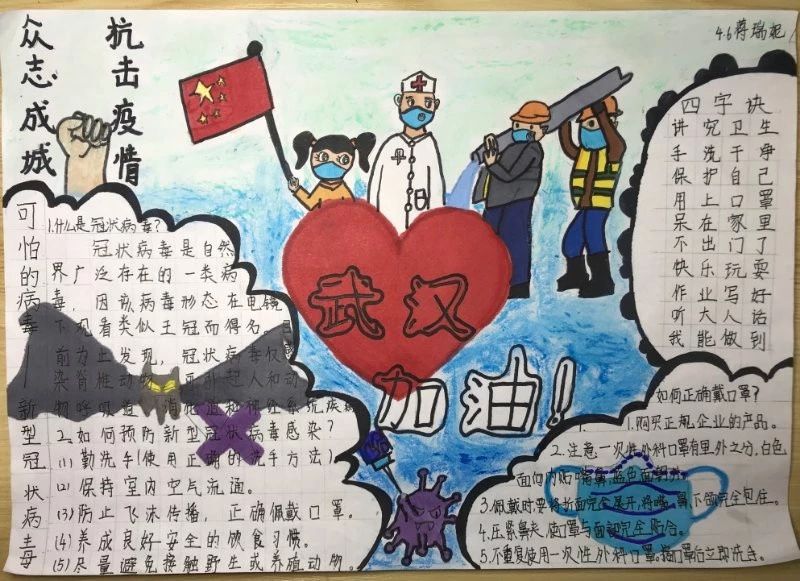 众志成城
抗击疫情
4.6蒋瑞妮
可怕的病毒—新型冠状病毒
1.什么是冠状病毒?
冠状病毒是自然
界广泛存在的一类病
毒,因该病毒形态在电镜
下观看类似王冠而得名,目
前为止发现,冠状病毒仅
染脊椎动物,可引起人和动
物呼吸道、消化道和神经系统疾病
2.如何预防新型冠状病毒感染?
(1)勤洗手(使用正确的洗手方法)
(2)保持室内空气流通。
(3)防止飞沫传播,正确佩戴口罩。
(4)养成良好安全的饮食习惯。
(5)尽量避免接触野生或养殖动物。
武汉
加油!
四字诀
讲究卫生
手洗干净
保护自己
用上口罩
呆在家里
不出门了
快乐玩耍
作业写好
听大人话
我能做到
如何正确戴口罩?
1.购买正规企业的产品。
2.注意一次性外科口罩有里外之分,白色
面向内贴嘴鼻,蓝色面朝外。
3.佩戴时要将折面完全展开,将嘴、鼻、下颌完全包住。
4.压紧鼻夹,使口罩与面部完全贴合。
5.不重复使用一次性外科口罩。摘口罩后立即洗手。